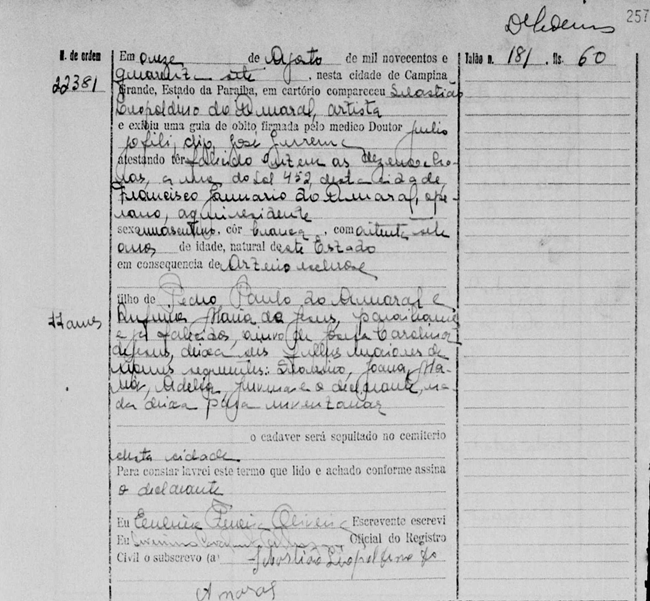 257
N. de ordem
22381
Em onze de Agosto de mil novecentos e
quarenta sete, nesta cidade de Campina
Grande, Estado da Paraiba, em cartório compareceu Sebastião
Leopoldino do Amaral, artista
e exibiu uma guia de obito firmada pelo medico Doutor Julio
José
atestando ter falecido ontem as dezenove ho-
ras, a rua do Sol 452, desta cidade,
Francisco Januario do Amaral, ope-
rario, aqui residente
sexo masculino, côr branca, com oitenta sete
anos de idade, natural deste Estado
em consequencia de Arterio esclerose
filho de Pedro Paulo do Amaral e
Maria de Jesus, paraibanos
e já falecidos, viuvo de Carolina
de Jesus, deixa seis filhos maiores de
nomes seguintes: Joana, Ma-
ria, Adelia, e o declarante, na-
da deixa para inventariar
o cadaver será sepultado no cemiterio
desta cidade
Para constar lavrei este termo que lido e achado conforme assina
o declarante
Eu Pereira Oliveira Escrevente escrevi
Eu Oficial do Registro
Civil o subscrevo (a) Sebastião Leopoldino do
Amaral
Talão n. 181, fls. 60